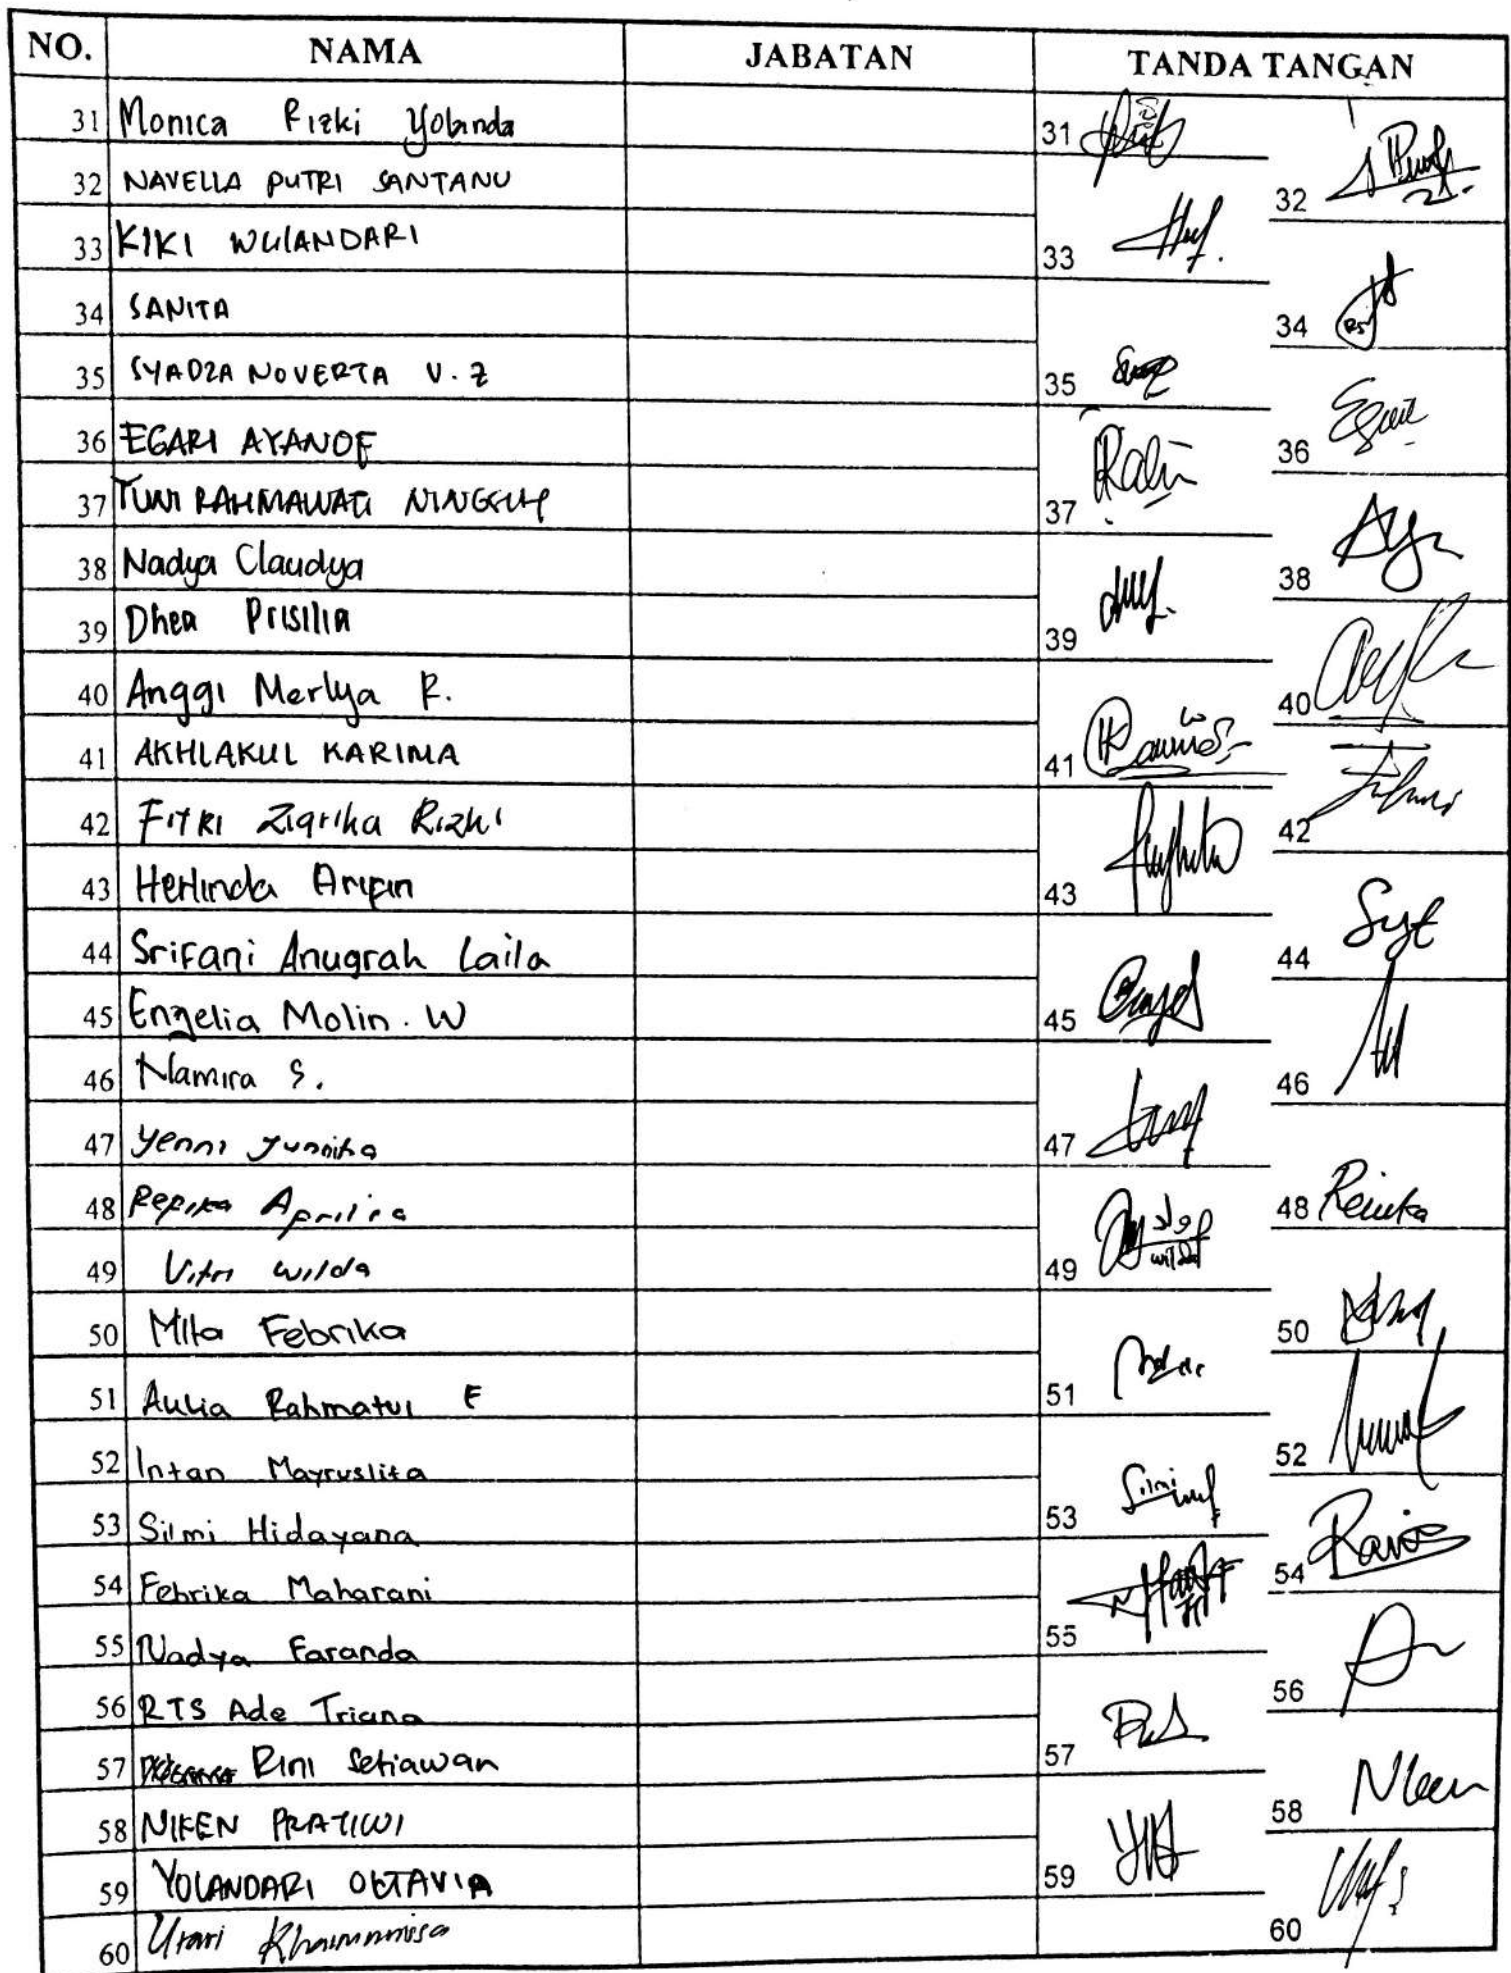 NO. NAMA JABATAN TANDA TANGAN
31 Monica Rizki Yolanda 31
32 NAVELLA PUTRI SANTANU 32
33 KIKI WULANDARI 33
34 SANITA 34
35 SYADZA NOVERTA V.Z 35
36 EGARI AYANOF 36
37 RAHMAWATI 37
38 Nadya Claudya 38
39 Dhea Prisilia 39
40 Anggi Merlya R. 40
41 AKHLAKUL KARIMA 41
42 FITRI Ziqrika Rizki 42
43 Herlinda Aripin 43
44 Srifani Anugrah Laila 44
45 Engelia Molin. W 45
46 Namira S. 46
47 Yenni Junnika 47
48 Repika Aprilia 48
49 Vitri Wilda 49 wilda
50 Mita Febrika 50
51 Aulia Rahmatul F 51
52 Intan Mayruslita 52
53 Silmi Hidayana 53 Silmi
54 Febrika Maharani 54
55 Nadya Faranda 55
56 RTS Ade Triana 56
57 Rini Setiawan 57
58 NIKEN PRATIWI 58
59 YOLANDARI OKTAVIA 59
60 Utari Khairunnisa 60